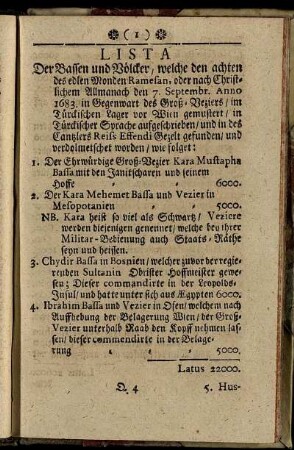 (1)
LISTA
Der Bassen und Völcker/ welche den achten
des edlen Monden Ramesan, oder nach Christ-
lichem Allmanach den 7. Septembr. Anno
1683. in Gegenwart des Groß-Veziers/ im
Türckischen Lager vor Wien gemustert/ in
Türckischer Sprache aufgeschrieben/ und in des
Cantzlers Reis: Effendi Gezelt gefunden/ und
verdolmetschet worden/ wie folget:
1. Der Ehrwürdige Groß-Vezier Kara Mustapha
Bassa mit den Janitscharen und seinem
Hoffe 6000.
2. Der Kara Mehemet Bassa und Vezier in
Mesopotanien 5000.
NB. Kara heist so viel als Schwartz/ Veziere
werden diejenigen genennet/ welche bey ihrer
Militar-Bedienung auch Staats-Räthe
seyn und heissen.
3. Chydir Bassa in Bosnien/ welcher zuvor der regie-
renden Sultanin Obrister Hoffmeister gewe-
sen; Dieser commandirte in der Leopolds-
Insul/ und hatte unter sich aus Ægypten 6000.
4. Ibrahim Bassa und Vezier in Ofen/ welchem nach
Auffhebung der Belagerung Wien/ der Groß-
Vezier unterhalb Raab den Kopff nehmen las-
sen/ dieser commendirte in der Belage-
rung 5000.
Latus 22000.
Q 4 5. Hus-